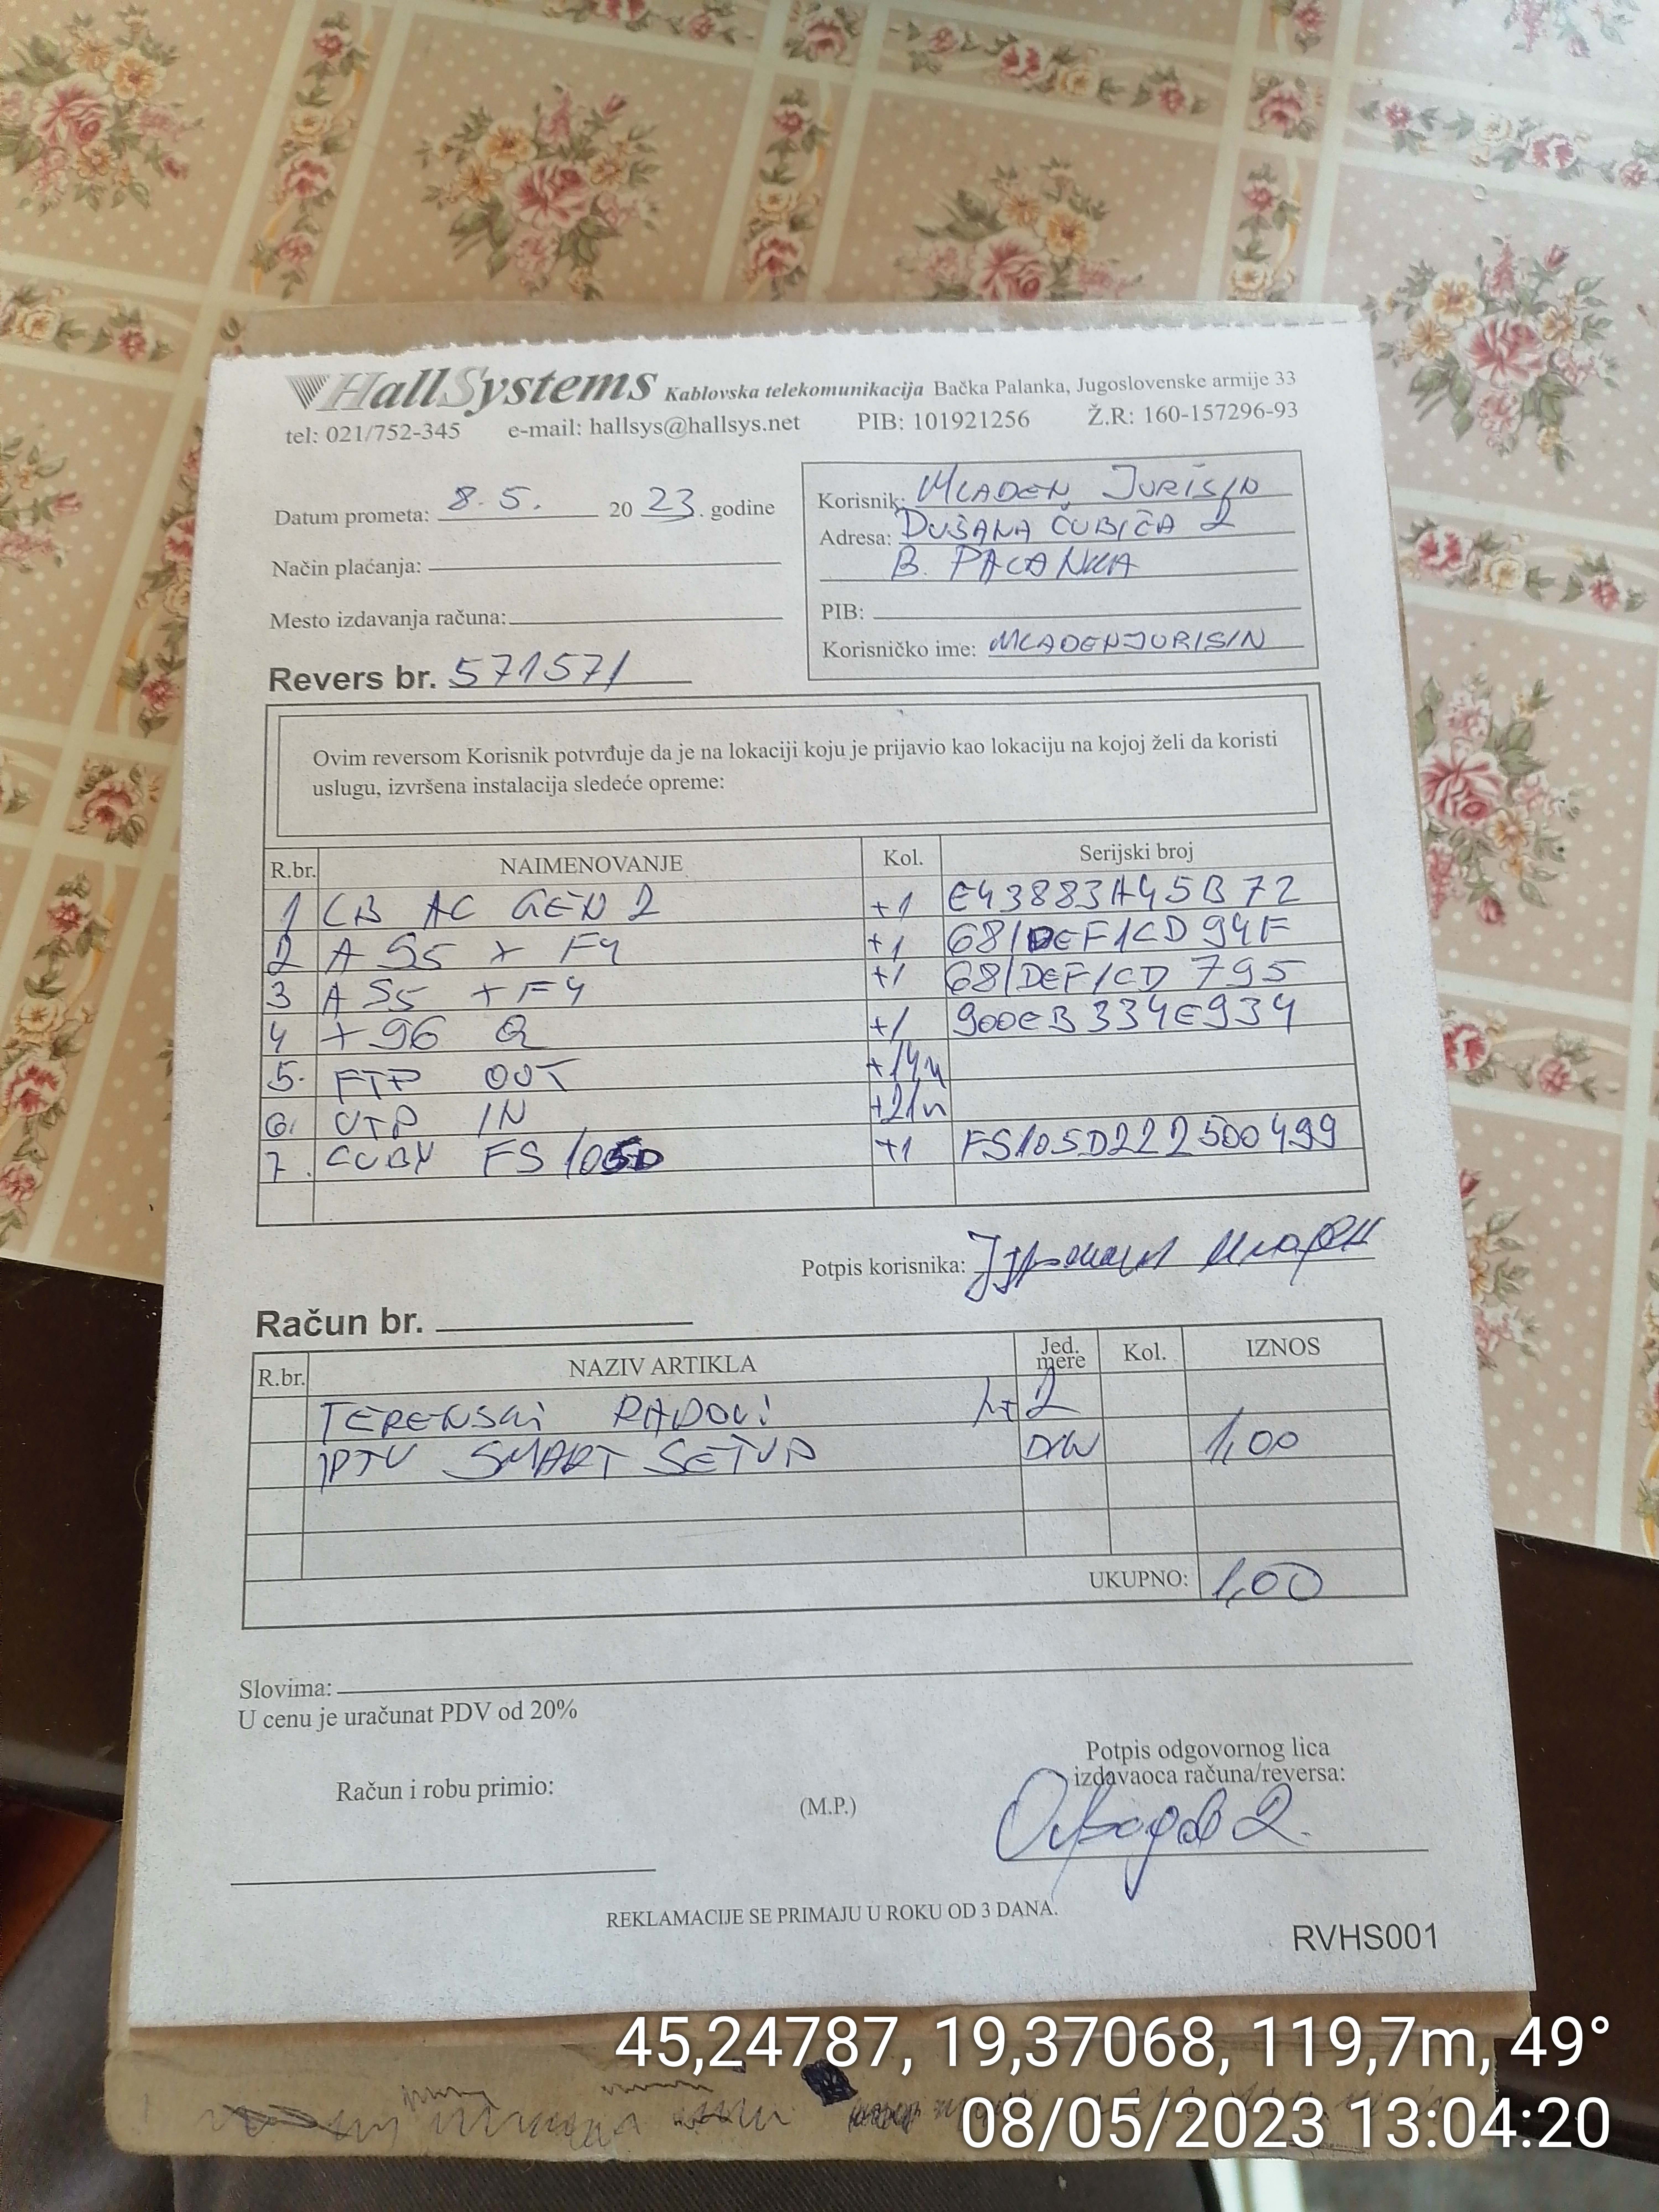 HallSystems Kablovska telekomunikacija Bačka Palanka, Jugoslovenske armije 33
tel: 021/752-345 e-mail: hallsys@hallsys.net PIB: 101921256 Ž.R: 160-157296-93
Datum prometa: 8.5. 2023. godine
Način plaćanja:
Mesto izdavanja računa:
Revers br. 571571
Korisnik: MLADEN JURIŠIN
Adresa: DUŠANA ČUBIĆA 2
B. PALANKA
PIB:
Korisničko ime: MLADENJURISIN
Ovim reversom Korisnik potvrđuje da je na lokaciji koju je prijavio kao lokaciju na kojoj želi da koristi
uslugu, izvršena instalacija sledeće opreme:
R.br. NAIMENOVANJE Kol. Serijski broj
1 CB AC GEN 2 +1 E43883A45B72
2 A S5 X F4 +1 681DEF1CD94F
3 A S5 + F4 +1 681DEF1CD795
4 X96 Q +1 900EB334E934
5. FTP OUT +14m
6. UTP IN +21m
7. CUBY FS105D +1 FS105D222500499
Potpis korisnika: Јуришин Младен
Račun br.
R.br. NAZIV ARTIKLA Jed. mere Kol. IZNOS
TERENSKI RADOVI 1+2
IPTV SMART SETUP DIN 1,00
UKUPNO: 1,00
Slovima:
U cenu je uračunat PDV od 20%
Račun i robu primio:
(M.P.)
Potpis odgovornog lica
izdavaoca računa/reversa:
REKLAMACIJE SE PRIMAJU U ROKU OD 3 DANA.
RVHS001
45,24787, 19,37068, 119,7m, 49°
08/05/2023 13:04:20